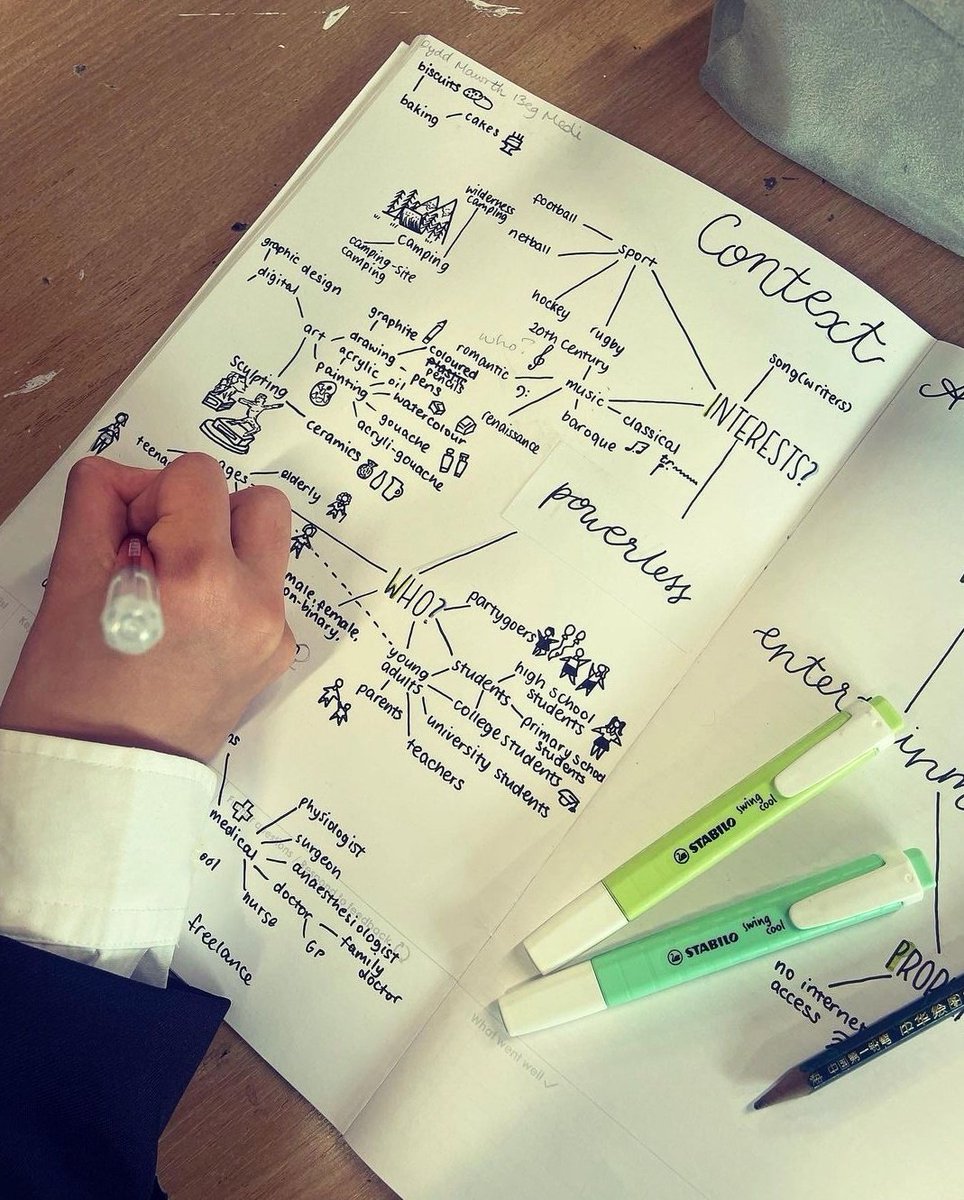 Dydd Mawrth 13eg Medi
biscuits
baking
cakes
Context
wilderness
camping
camping
camping-site
camping
football
netball
sport
hockey
rugby
graphic design
digital
art
graphite
drawing
coloured
pencils
pens
acrylic
oil
painting
watercolour
gouache
acryli-gouache
sculpting
ceramics
who?
romantic
20th century
music
renaissance
baroque
classical
song(writers)
INTERESTS?
powerless
teena
ages
elderly
WHO?
male, female,
on-binary,
partygoers
young
adults
parents
teachers
students
high school
students
primary school
students
college students
university students
ns
medical
physiologist
surgeon
anaesthesiologist
doctor
GP
family
doctor
nurse
ool
freelance
feedback
what went well ✓
enter
inm
PROP
no interne
access
STABILO swing cool
STABILO swing cool